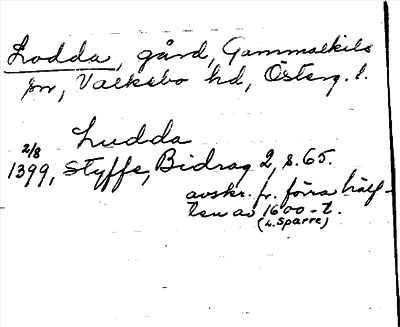 Lodda, gård, Gammalkils
sn, Valkebo hd, Österg. l.
Ludda
2/8
1399, Styffe, Bidrag 2, s. 65.
avskr. fr. förra hälf-
ten av 1600-t.
(L. Sparre)